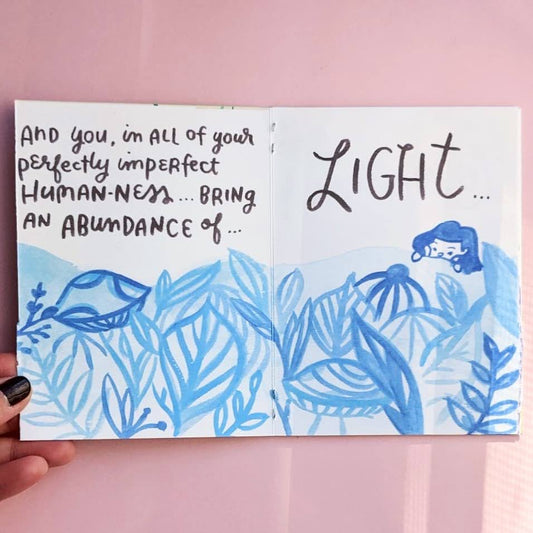 And you, in ALL of your
perfectly imperfect
HUMAN-NESS... BRING
AN ABUNDANCE of...
LIGHT...